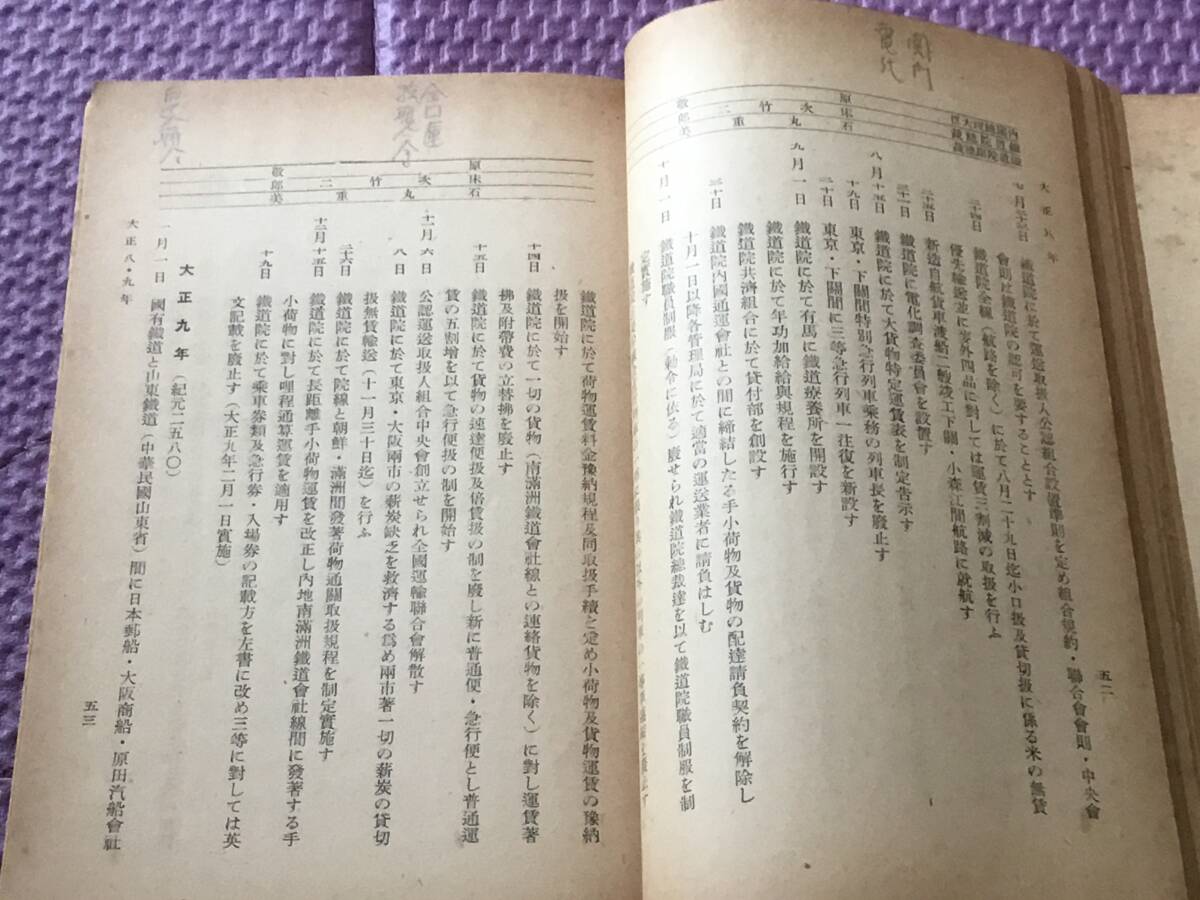 關門
電化
内閣總理大臣
鐵道院總裁
鐵道院副總裁
原
敬
床次竹二郎
石丸重美
大正八年
五二
七月二十三日
鐵道院に於て運送取扱人公認組合設置準則を定め組合契約・聯合會會則・中央會
會則は鐵道院の認可を要することとす
二十四日
鐵道院全線(航路を除く)に於て八月二十九日迄小口扱及貸切扱に係る米の無賃
優先輸送並に麥外四品に對しては運賃三割減の取扱を行ふ
二十五日
新造自航貨車渡船二艘竣工下關・小森江間航路に就航す
三十一日
鐵道院に電化調査委員會を設置す
八月十五日
鐵道院に於て大貨物特定運賃表を制定告示す
十九日
東京・下關間特別急行列車乘務の列車長を廢止す
二十日
東京・下關間に三等急行列車一往復を新設す
九月一日
鐵道院に於て有馬に鐵道療養所を開設す
鐵道院に於て年功加給給與規程を施行す
鐵道院共濟組合に於て貸付部を創設す
三十日
鐵道院内國通運會社との間に締結したる手小荷物及貨物の配達請負契約を解除し
十月一日以降各管理局に於て適當の運送業者に請負はしむ
十月一日
鐵道院職員制服(勅令に依る)廢せられ鐵道院總裁達を以て鐵道院職員制服を制
定實施す
原
敬
床次竹二郎
石丸重美
鐵道院に於て荷物運賃料金豫納規程及同取扱手續を定め小荷物及貨物運賃の豫納
扱を開始す
十四日
鐵道院に於て一切の貨物(南滿洲鐵道會社線との連絡貨物を除く)に對し運賃著
拂及附帶費の立替拂を廢止す
十五日
鐵道院に於て貨物の速達便扱及倍賃扱の制を廢し新に普通便・急行便とし普通運
賃の五割增を以て急行便扱の制を開始す
十一月六日
公認運送取扱人組合中央會創立せられ全國運輸聯合會解散す
八日
鐵道院に於て東京・大阪兩市の薪炭缺乏を救濟する爲め兩市著一切の薪炭の貸切
扱無賃輸送(十一月三十日迄)を行ふ
二十六日
鐵道院に於て院線と朝鮮・滿洲間發著荷物通關取扱規程を制定實施す
十二月十五日
鐵道院に於て長距離手小荷物運賃を改正し内地南滿洲鐵道會社線間に發著する手
小荷物に對し哩程通算運賃を適用す
十九日
鐵道院に於て乘車券類及急行券・入場券の記載方を左書に改め三等に對しては英
文記載を廢止す(大正九年二月一日實施)
大正九年(紀元二五八〇)
一月一日
國有鐵道と山東鐵道(中華民國山東省)間に日本郵船・大阪商船・原田汽船會社
大正八・九年
五三